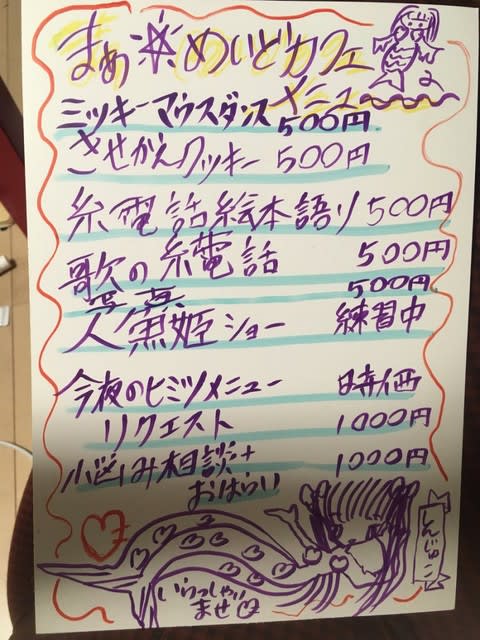 まぁ☆めいどカフェ
メニュー
ミッキーマウスダンス 500円
きせかえクッキー 500円
糸電話絵本語り 500円
歌の糸電話 500円
写真 500円
人魚姫ショー 練習中
今夜のヒミツメニュー 時価
リクエスト 1000円
小悩み相談+ 1000円
おはらい
いらっしゃい
ませ
しんじゅこ